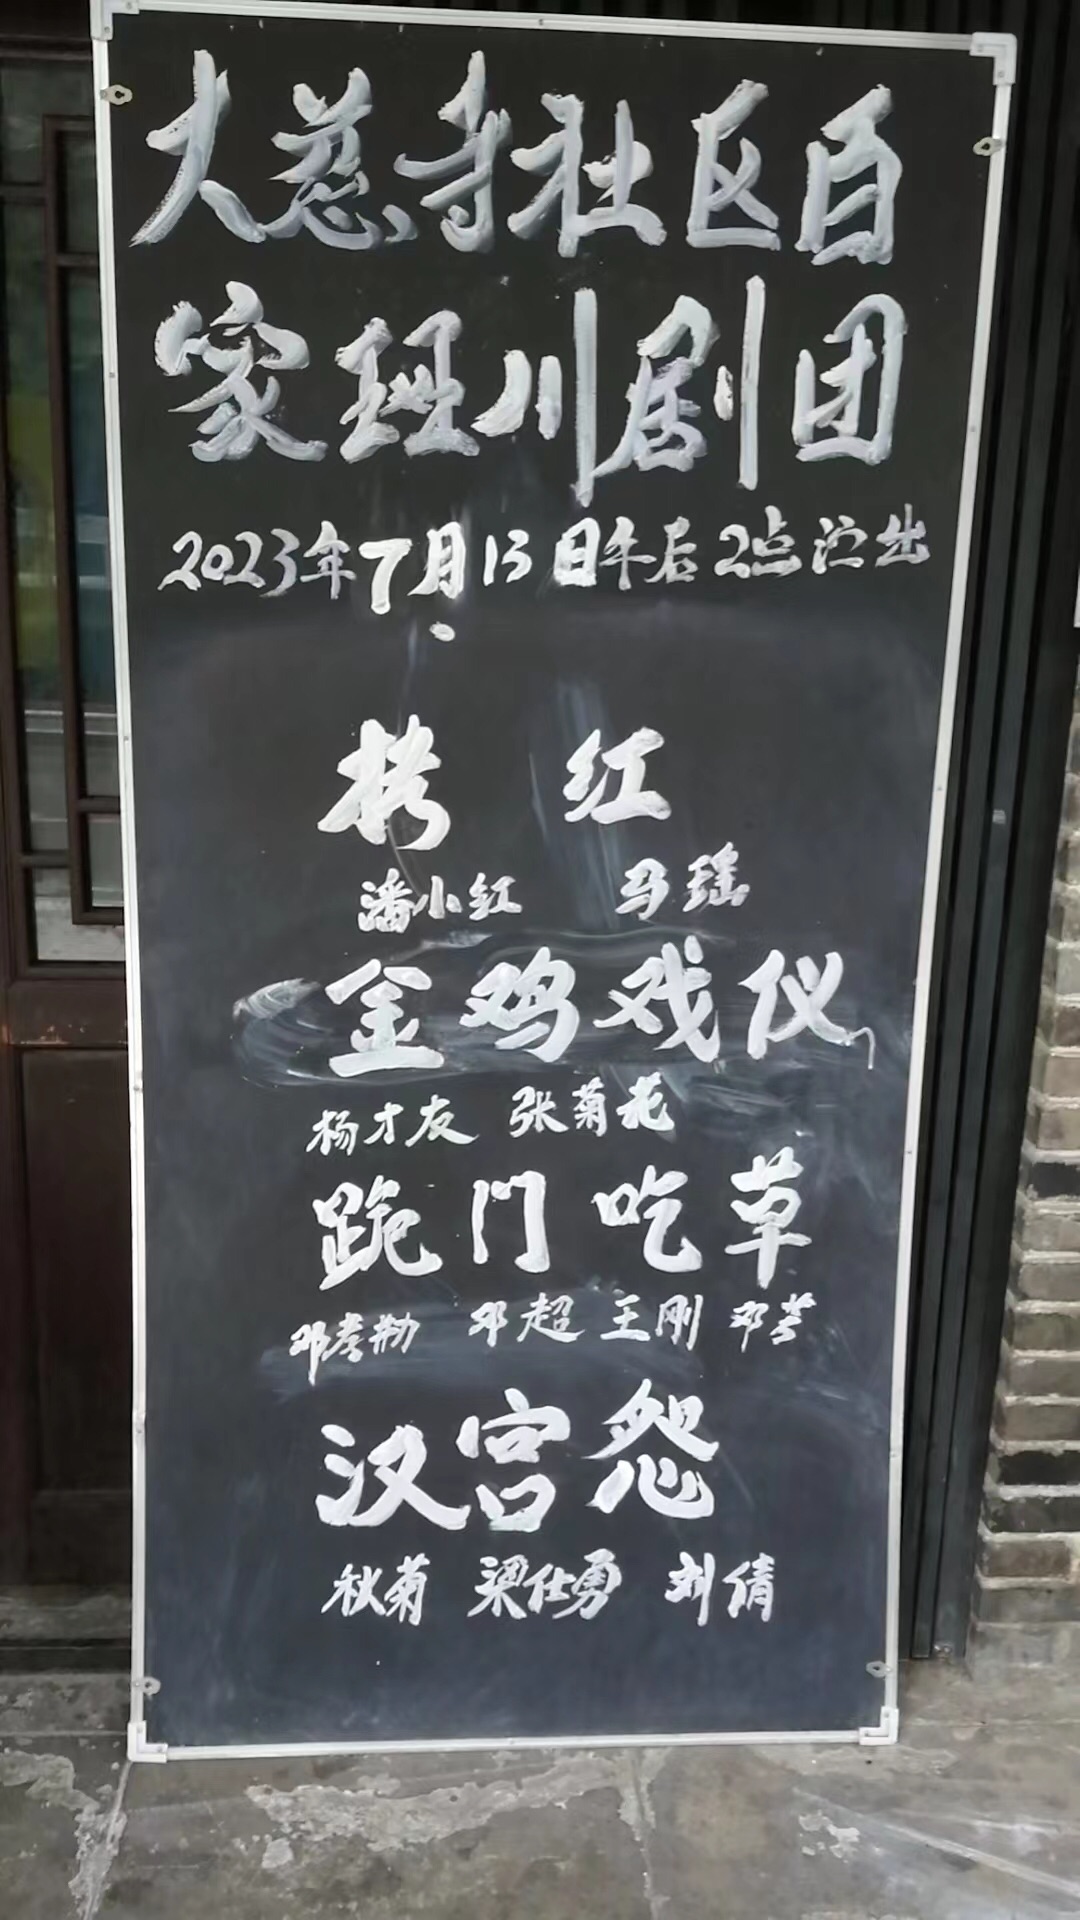 大慈寺社区百
家班川剧团
2023年7月13日午后2点演出
拷 红
潘小红 马瑶
金鸡戏仪
杨才友 张菊花
跪门吃草
邓孝勤 邓超 王刚 邓芳
汉宫怨
秋菊 梁仕勇 刘倩